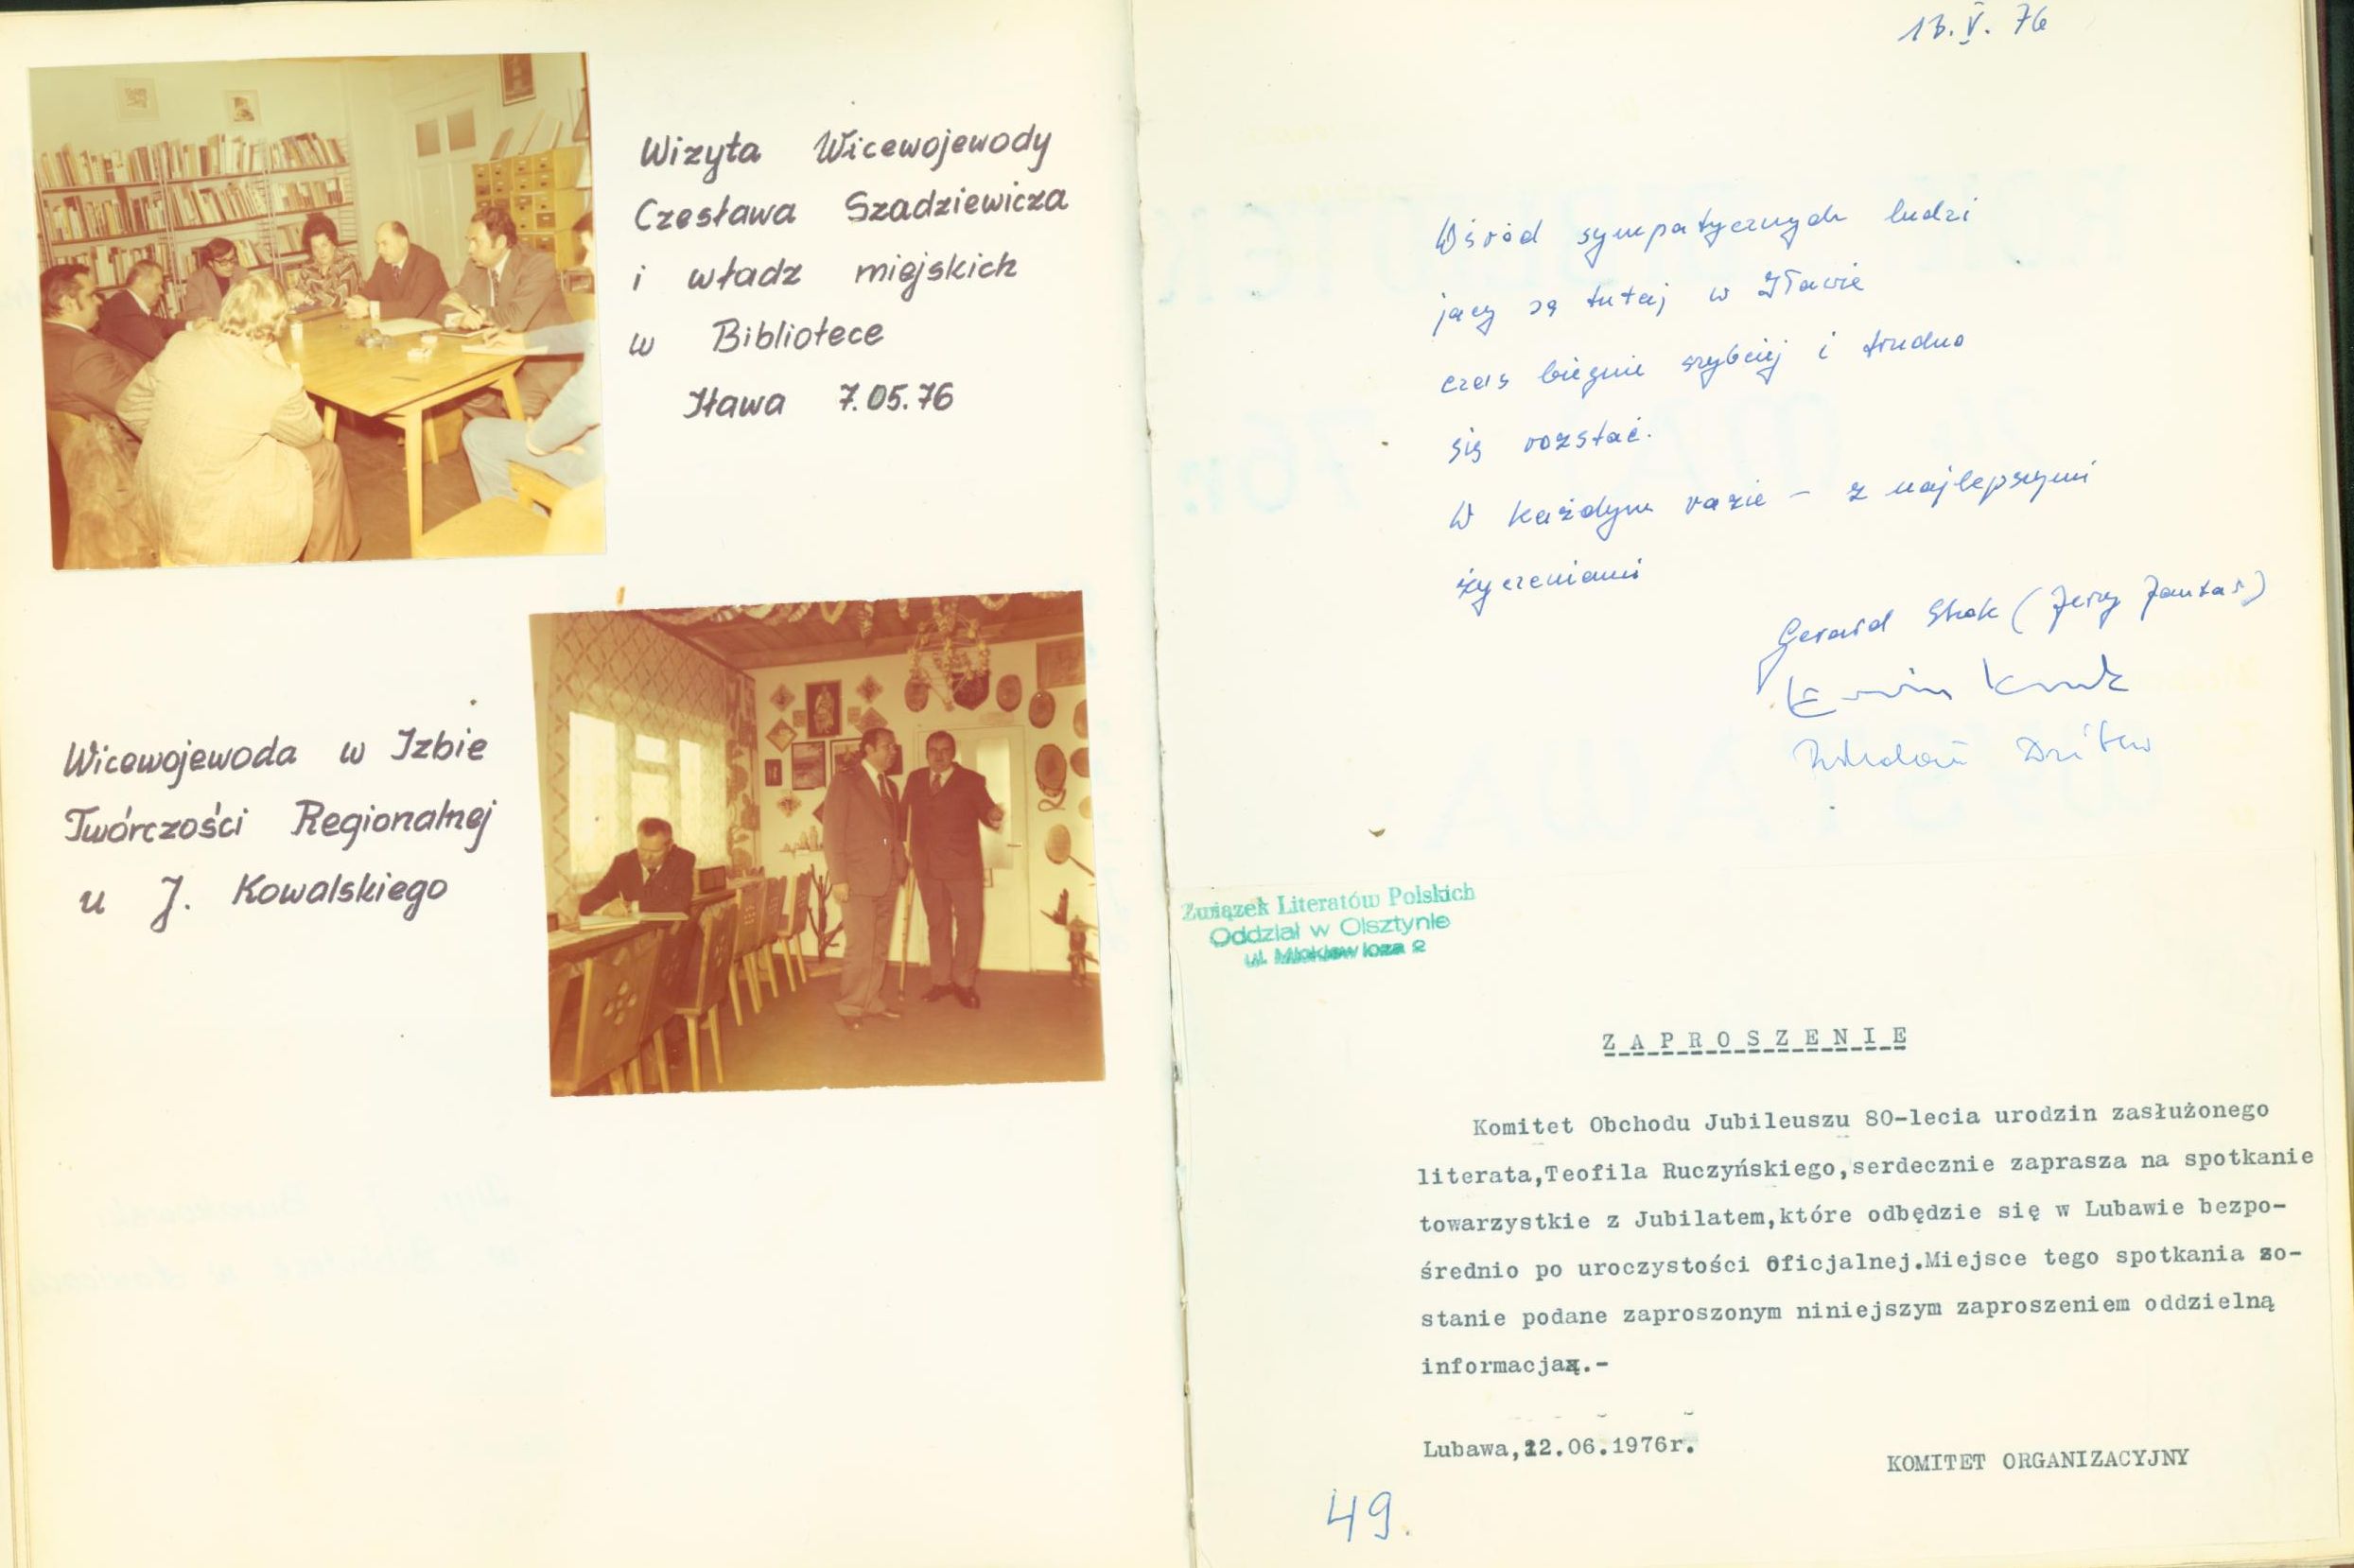 Wizyta Wicewojewody
Czesława Szadziewicza
i władz miejskich
w Bibliotece
Iława 7.05.76
Wicewojewoda w Izbie
Twórczości Regionalnej
u J. Kowalskiego
13.V.76
Wśród sympatycznych ludzi
jacy są tutaj w Iławie
czas biegnie szybciej i trudno
się rozstać.
W każdym razie – z najlepszymi
życzeniami
Gerard Skok (Jerzy Jantar)
Erwin Kruk
Związek Literatów Polskich
Oddział w Olsztynie
ul. Mickiewicza 2
ZAPROSZENIE
Komitet Obchodu Jubileuszu 80-lecia urodzin zasłużonego
literata,Teofila Ruczyńskiego,serdecznie zaprasza na spotkanie
towarzystkie z Jubilatem,które odbędzie się w Lubawie bezpo-
średnio po uroczystości oficjalnej.Miejsce tego spotkania zo-
stanie podane zaproszonym niniejszym zaproszeniem oddzielną
informacją.-
Lubawa,12.06.1976r.
KOMITET ORGANIZACYJNY
49.